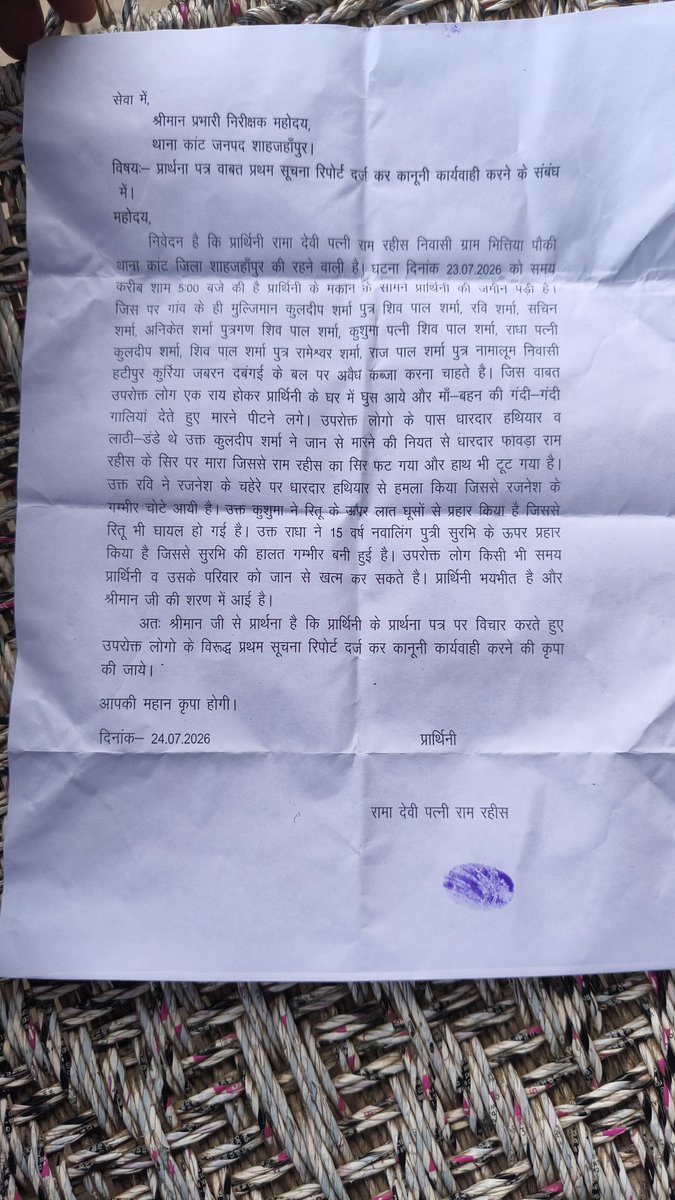 सेवा में,
श्रीमान प्रभारी निरीक्षक महोदय,
थाना कांट जनपद शाहजहाँपुर।
विषयः– प्रार्थना पत्र वाबत प्रथम सूचना रिपोर्ट दर्ज कर कानूनी कार्यवाही करने के संबंध
में।
महोदय,
निवेदन है कि प्रार्थिनी रामा देवी पत्नी राम रहीस निवासी ग्राम भित्तिया पौकी
थाना कांट जिला शाहजहाँपुर की रहने वाली है। घटना दिनांक 23.07.2026 को समय
करीब शाम 5:00 बजे की है प्रार्थिनी के मकान के सामने प्रार्थिनी की जमीन पड़ी है।
जिस पर गांव के ही मुल्जिमान कुलदीप शर्मा पुत्र शिव पाल शर्मा, रवि शर्मा, सचिन
शर्मा, अनिकेत शर्मा पुत्रगण शिव पाल शर्मा, कुशुमा पत्नी शिव पाल शर्मा, राधा पत्नी
कुलदीप शर्मा, शिव पाल शर्मा पुत्र रामेश्वर शर्मा, राज पाल शर्मा पुत्र नामालूम निवासी
हटीपुर कुर्रिया जबरन दबंगई के बल पर अवैध कब्जा करना चाहते है। जिस वाबत
उपरोक्त लोग एक राय होकर प्रार्थिनी के घर में घुस आये और माँ–बहन की गंदी–गंदी
गालियां देते हुए मारने पीटने लगे। उपरोक्त लोगो के पास धारदार हथियार व
लाठी–डंडे थे उक्त कुलदीप शर्मा ने जान से मारने की नियत से धारदार फावड़ा राम
रहीस के सिर पर मारा जिससे राम रहीस का सिर फट गया और हाथ भी टूट गया है।
उक्त रवि ने रजनेश के चहेरे पर धारदार हथियार से हमला किया जिससे रजनेश के
गम्भीर चोटे आयी है। उक्त कुशुमा ने रितू के ऊपर लात घूसों से प्रहार किया है जिससे
रितू भी घायल हो गई है। उक्त राधा ने 15 वर्ष नवालिंग पुत्री सुरभि के ऊपर प्रहार
किया है जिससे सुरभि की हालत गम्भीर बनी हुई है। उपरोक्त लोग किसी भी समय
प्रार्थिनी व उसके परिवार को जान से खत्म कर सकते है। प्रार्थिनी भयभीत है और
श्रीमान जी की शरण में आई है।
अतः श्रीमान जी से प्रार्थना है कि प्रार्थिनी के प्रार्थना पत्र पर विचार करते हुए
उपरोक्त लोगो के विरूद्ध प्रथम सूचना रिपोर्ट दर्ज कर कानूनी कार्यवाही करने की कृपा
की जाये।
आपकी महान कृपा होगी।
दिनांक– 24.07.2026 प्रार्थिनी
रामा देवी पत्नी राम रहीस